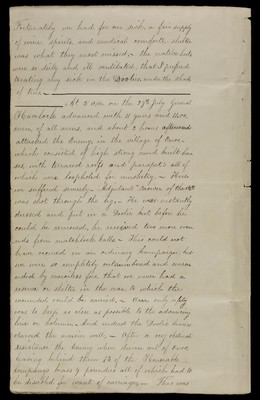 Fortunately we had for our sick a fair supply
of wines, spirits and medical comforts, shelter
was what they most missed, the native huts
were so dirty and ill ventilated, that I prefered
treating my sick in the Doolies, under the shade
of trees.
At 5 a.m. on the 29th July General
Havelock advanced with 11 guns and 1500
men, of all arms, and about 2 hours afterwards
attacked the Enemy, in the village of Onao,
which consisted of high strong mud built houses
with terraced roofs and parapets all of
which was loopholed for musketry. Here
we suffered severely. Adjutant Brown of the
was shot through the leg. He was instantly
dressed and put in a Doolie but before he
could be removed, he received two more wounds
from matchlock balls. This could not
have occured in an ordinary Campaign but
we were so completely outnumbered and surrounded
by merciless foes that we never had a
reserve or shelter in the rear to which the
wounded could be carried. Our only safety
was to keep as close as possible to the advancing
line or column. And indeed the Doolie bearers
learned this lesson well. After a very obstinate
resistance the Enemy were driven out of Onao
leaving behind them 13 of the Honorable
Companys brass 9 pounders all of which had to
be disabled for want of carriage. This was